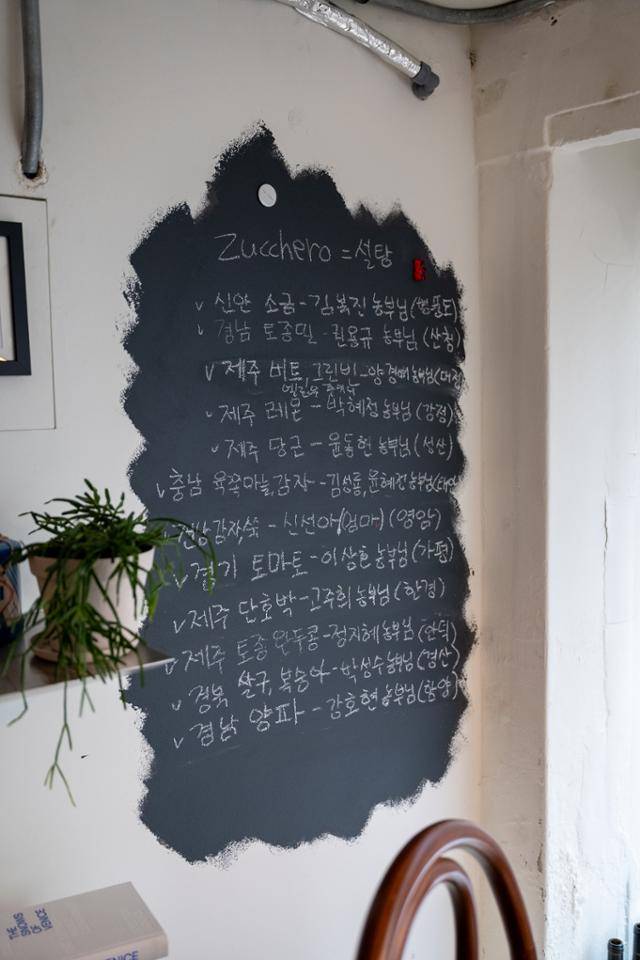 Zucchero = 설탕
✓ 신안 소금 - 김복진 농부님 (병풍도)
✓ 경남 토종밀 - 권용규 농부님 (산청)
✓ 제주 비트, 그린빈 - 농부님
✓ 제주 레몬 - 박혜정 농부님 (강정)
✓ 제주 당근 - 윤동헌 농부님 (성산)
✓ 충남 육쪽마늘, 감자 - 김성룡, 윤혜진 농부님
✓ 전남 감자, 쑥 - 신선아 (엄마) (영암)
✓ 경기 토마토 - 이상흔 농부님 (가평)
✓ 제주 단호박 - 고주희 농부님 (한경)
✓ 제주 토종 완두콩 - 정지혜 농부님
✓ 경북 살구, 복숭아 - 박성수 농부님 (경산)
✓ 경남 양파 - 강호현 농부님 (함양)
THE
OF VENICE